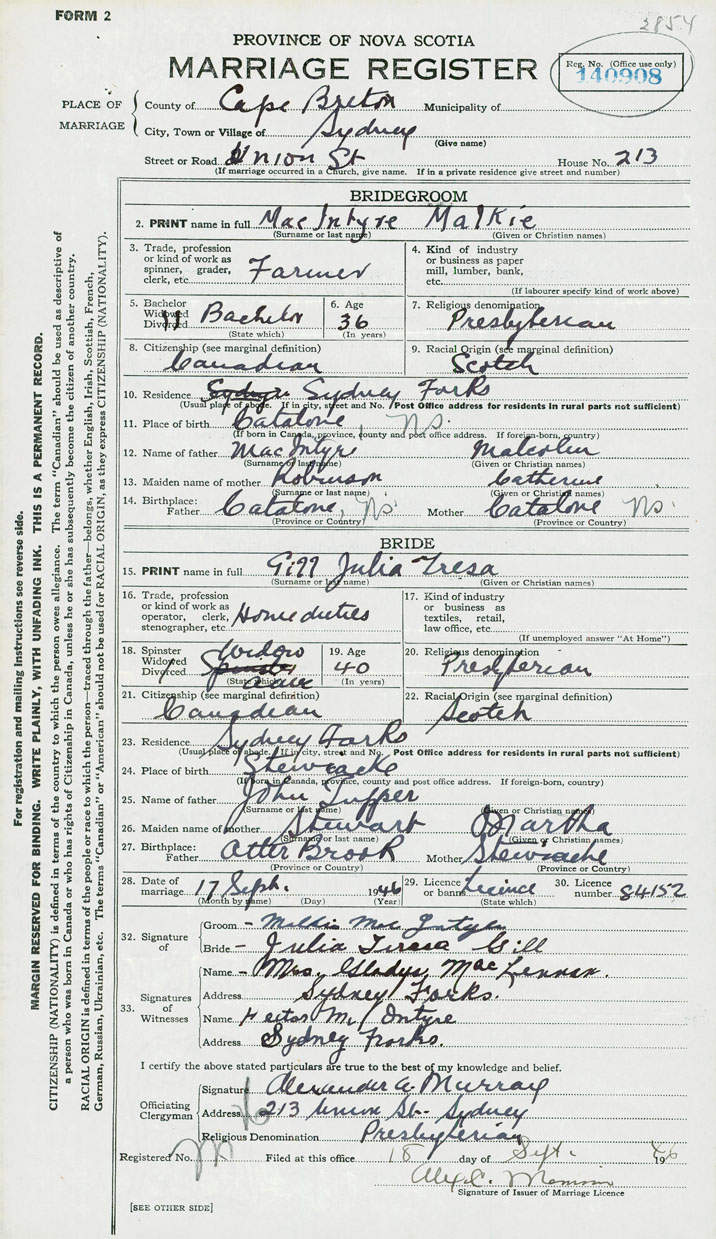 FORM 2
2854
PROVINCE OF NOVA SCOTIA
MARRIAGE REGISTER
Reg. No. (Office use only)
140908
PLACE OF MARRIAGE
County of Cape Breton Municipality of
City, Town or Village of Sydney
(Give name)
Street or Road Union St House No. 213
(If marriage occurred in a Church, give name. If in a private residence give street and number)
BRIDEGROOM
2. PRINT name in full MacIntyre Malkie
(Surname or last name) (Given or Christian names)
3. Trade, profession or kind of work as spinner, grader, clerk, etc. Farmer
4. Kind of industry or business as paper mill, lumber, bank, etc.
(If labourer specify kind of work above)
5. Bachelor Widowed Divorced Bachelor
(State which)
6. Age 36
(In years)
7. Religious denomination Presbyterian
8. Citizenship (see marginal definition) Canadian
9. Racial Origin (see marginal definition) Scotch
10. Residence Sydney Forks
(Usual place of abode. If in city, street and No. Post Office address for residents in rural parts not sufficient)
11. Place of birth Catalone, NS.
(If born in Canada, province, county and post office address. If foreign-born, country)
12. Name of father MacIntyre Malcolm
(Surname or last name) (Given or Christian names)
13. Maiden name of mother Robinson Catherine
(Surname or last name) (Given or Christian names)
14. Birthplace: Father Catalone, NS. Mother Catalone NS.
(Province or Country) (Province or Country)
BRIDE
15. PRINT name in full Gill Julia Tresa
(Surname or last name) (Given or Christian names)
16. Trade, profession or kind of work as operator, clerk, stenographer, etc. Home duties
17. Kind of industry or business as textiles, retail, law office, etc.
(If unemployed answer "At Home")
18. Spinster Widowed Divorced Widow Spinster
(State which)
19. Age 40
(In years)
20. Religious denomination Presbyterian
21. Citizenship (see marginal definition) Canadian
22. Racial Origin (see marginal definition) Scotch
23. Residence Sydney Forks
(Usual place of abode. If in city, street and No. Post Office address for residents in rural parts not sufficient)
24. Place of birth Stewiacke
(If born in Canada, province, county and post office address. If foreign-born, country)
25. Name of father John Tupper
(Surname or last name) (Given or Christian names)
26. Maiden name of mother Stewart Martha
(Surname or last name) (Given or Christian names)
27. Birthplace: Father Otter Brook Mother Stewiacke
(Province or Country) (Province or Country)
28. Date of marriage 17 Sept. 1946
(Month by name) (Day) (Year)
29. Licence or banns Licence
(State which)
30. Licence number 84152
32. Signature of
Groom - Mac Intyre
Bride - Julia Teresa Gill
33. Signatures of Witnesses
Name - Mrs. Gladys MacLennan.
Address Sydney Forks.
Name Hector McIntyre
Address Sydney Forks.
I certify the above stated particulars are true to the best of my knowledge and belief.
Officiating Clergyman
Signature Alexander A. Murray
Address 213 Union St - Sydney
Religious Denomination Presbyterian
Registered No. Filed at this office 18 day of Sept. 1946
Signature of Issuer of Marriage Licence
[SEE OTHER SIDE]
For registration and mailing instructions see reverse side.
MARGIN RESERVED FOR BINDING. WRITE PLAINLY, WITH UNFADING INK. THIS IS A PERMANENT RECORD.
CITIZENSHIP (NATIONALITY) is defined in terms of the country to which the person owes allegiance. The term "Canadian" should be used as descriptive of
a person who was born in Canada or who has rights of Citizenship in Canada, unless he or she has subsequently become the citizen of another country.
RACIAL ORIGIN is defined in terms of the people or race to which the person—traced through the father—belongs, whether English, Irish, Scottish, French,
German, Russian, Ukrainian, etc. The terms "Canadian" or "American" should not be used for RACIAL ORIGIN, as they express CITIZENSHIP (NATIONALITY).